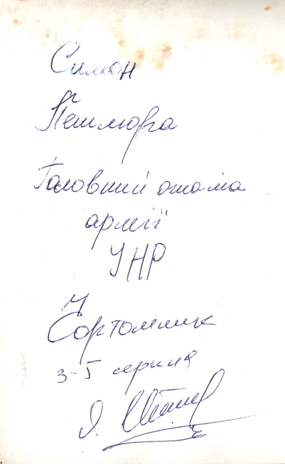 Симон
Петлюра
Головний отама
армії
УНР
Чортомлик
3-5 серпня